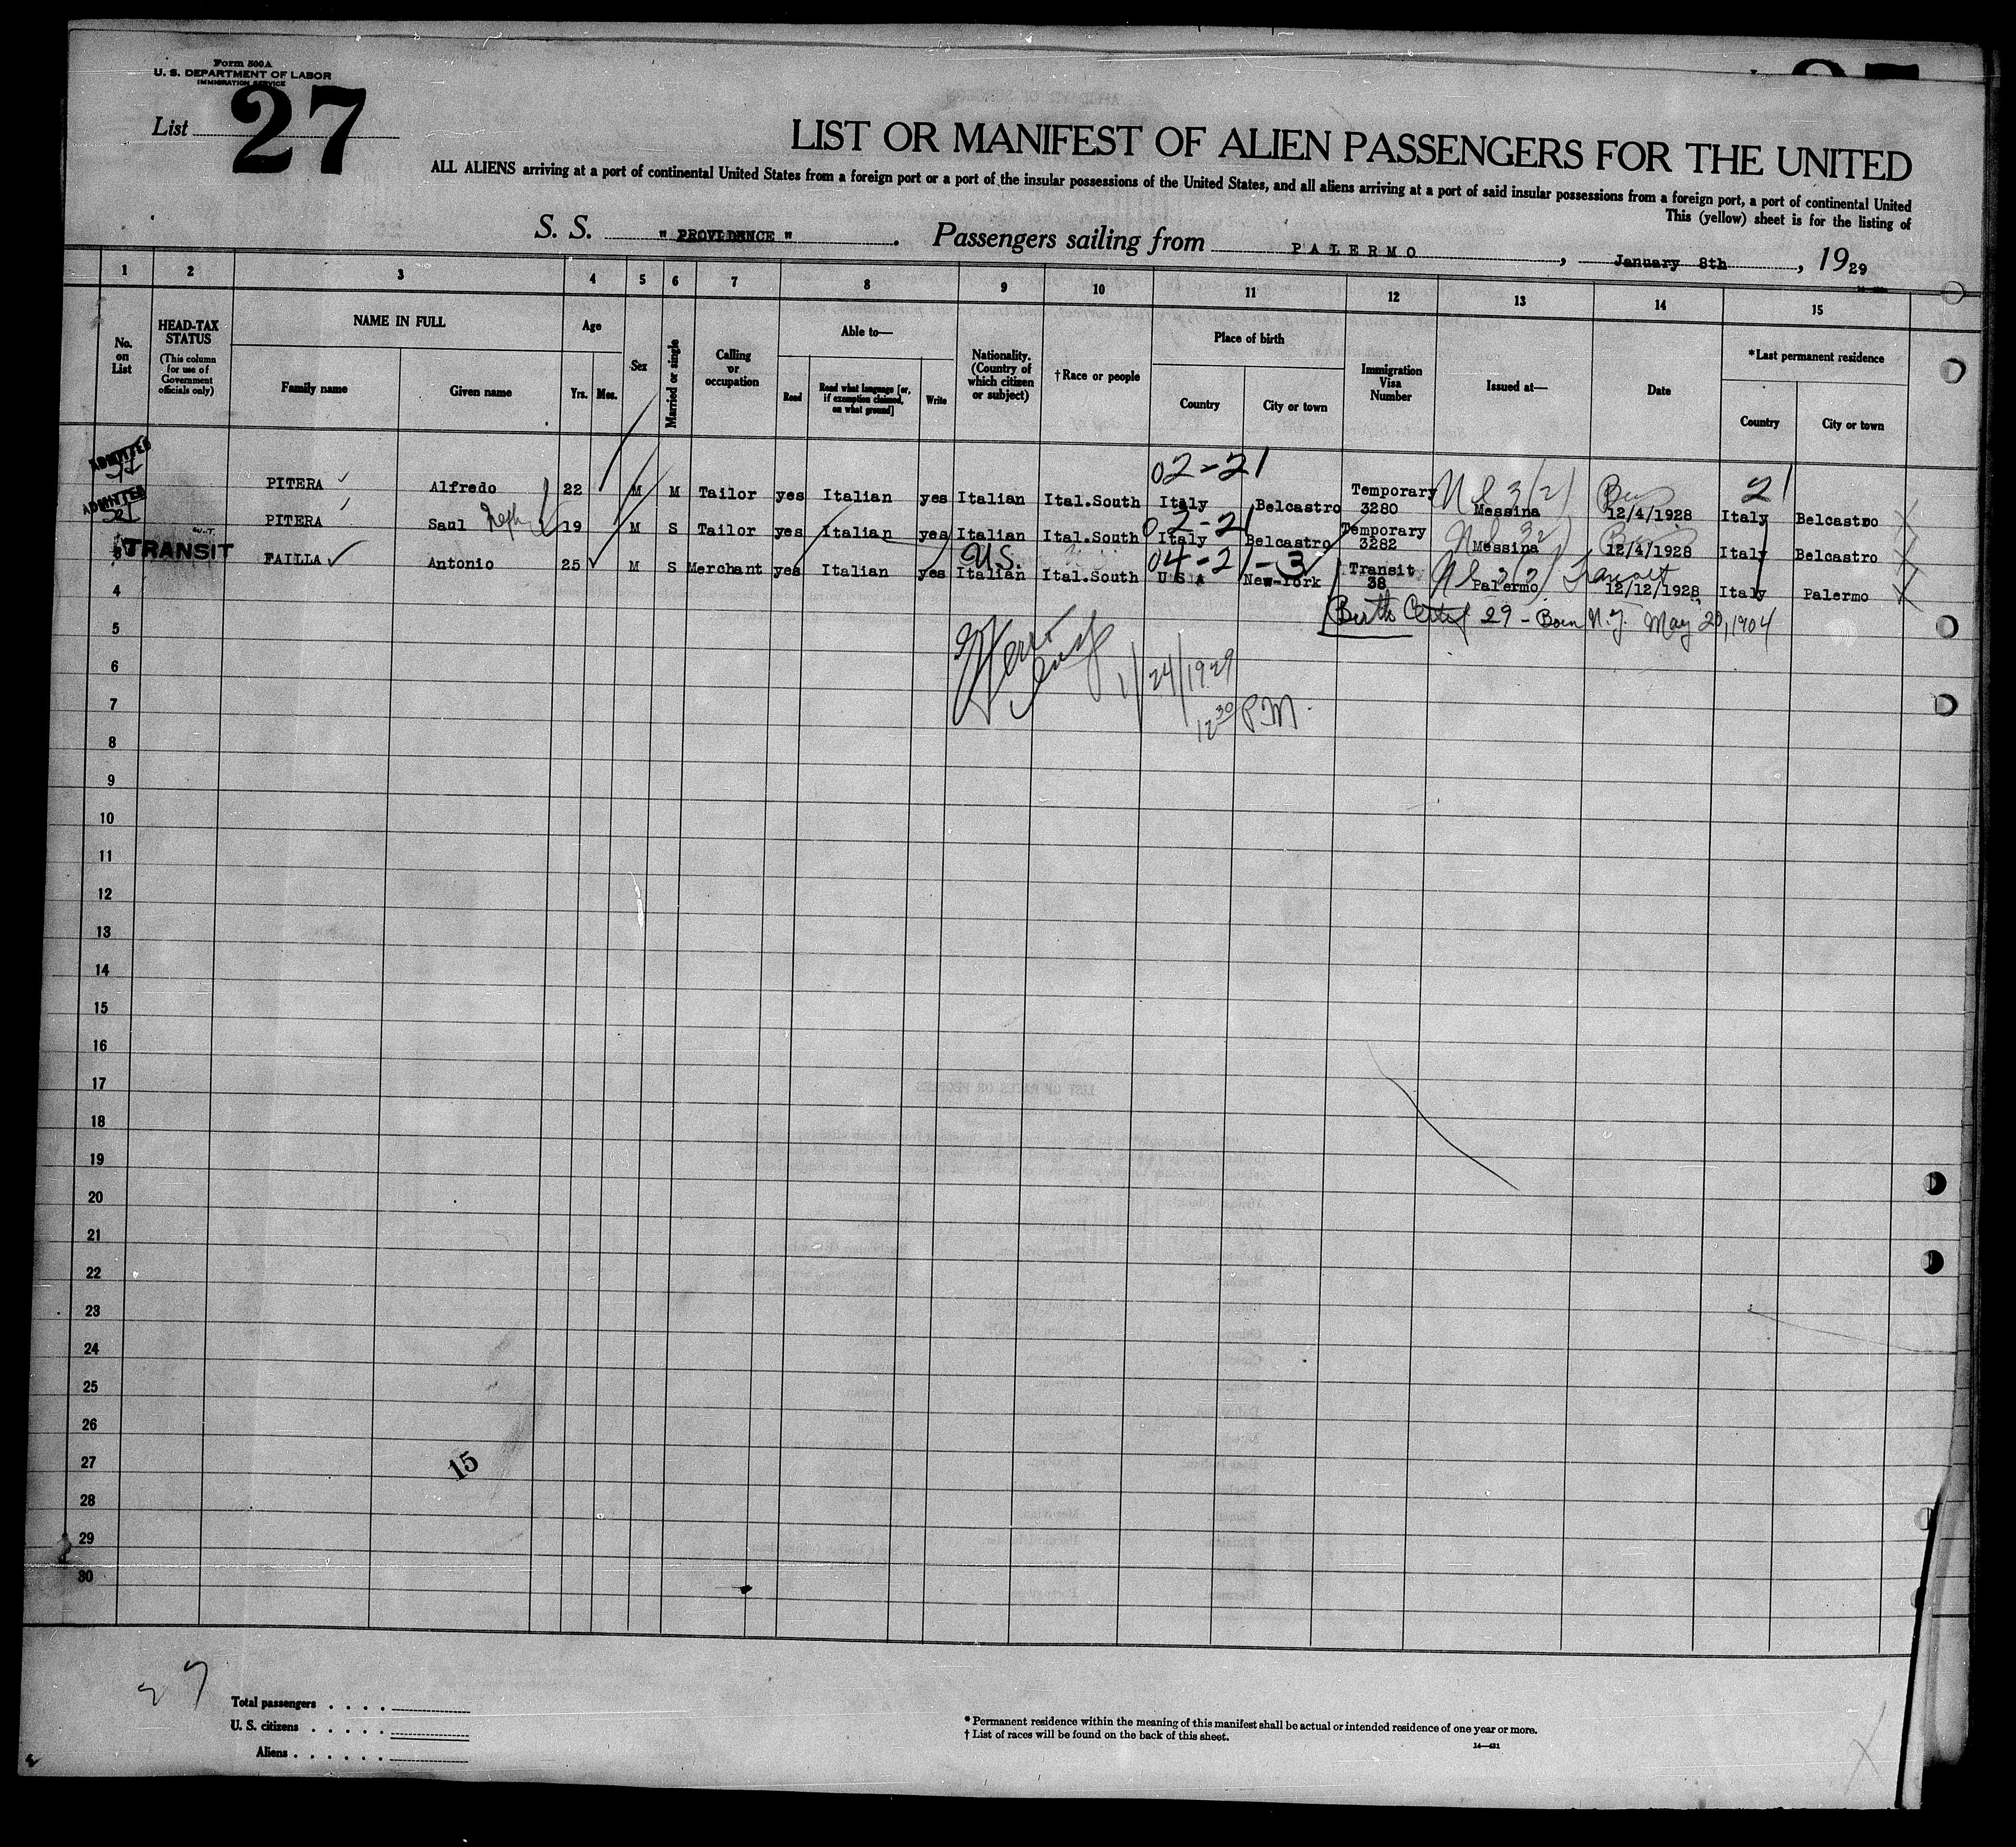 Form 500A
U. S. DEPARTMENT OF LABOR
IMMIGRATION SERVICE
List 27
LIST OR MANIFEST OF ALIEN PASSENGERS FOR THE UNITED
ALL ALIENS arriving at a port of continental United States from a foreign port or a port of the insular possessions of the United States, and all aliens arriving at a port of said insular possessions from a foreign port, a port of continental United
This (yellow) sheet is for the listing of
S. S. "PROVIDENCE". Passengers sailing from PALERMO, January 8th, 1929
1 2 3 4 5 6 7 8 9 10 11 12 13 14 15
No. on List
HEAD-TAX STATUS
(This column for use of Government officials only)
NAME IN FULL
Family name
Given name
Age
Yrs. Mos.
Sex
Married or single
Calling or occupation
Able to—
Read
Read what language [or, if exemption claimed, on what ground]
Write
Nationality. (Country of which citizen or subject)
†Race or people
Place of birth
Country
City or town
Immigration Visa Number
Issued at—
Date
*Last permanent residence
Country
City or town
02-21
21
ADMITTED PITERA Alfredo 22 M M Tailor yes Italian yes Italian Ital.South Italy Belcastro Temporary 3280 Messina 12/4/1928 Italy Belcastro
02-21
ADMITTED PITERA Saul 19 M S Tailor yes Italian yes Italian Ital.South Italy Belcastro Temporary 3282 Messina 12/4/1928 Italy Belcastro
U.S. 04-21-3 Transit
TRANSIT FAILLA Antonio 25 M S Merchant yes Italian yes Italian Ital.South U S A New-York Transit 38 Palermo 12/12/1928 Italy Palermo
4 Birth Certif 29 - Born N.Y. May 20, 1904
5
6
1/24/1929
7
12 30 P.M.
8
9
10
11
12
13
14
15
16
17
18
19
20
21
22
23
24
25
26
27
15
28
29
30
27
Total passengers
U. S. citizens
Aliens
* Permanent residence within the meaning of this manifest shall be actual or intended residence of one year or more.
† List of races will be found on the back of this sheet.
14—431